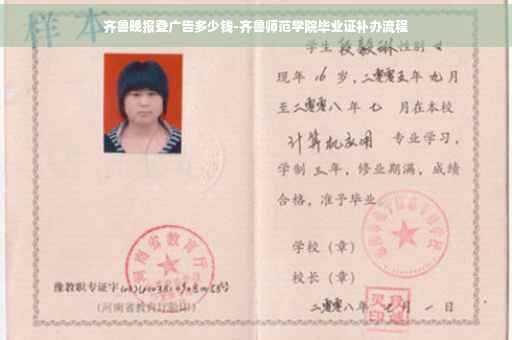 齐鲁晚报登广告多少钱-齐鲁师范学院毕业证补办流程
样本
学生段毅琳性别女
现年16岁,二零零五年九月
至二零零八年七月在本校
计算机应用 专业学习,
学制三年,修业期满,成绩
合格,准予毕业。
学校(章)
校长(章)
二零零八年 月一日
河南省教育厅
豫教职专证字
(河南省教育厅验印)